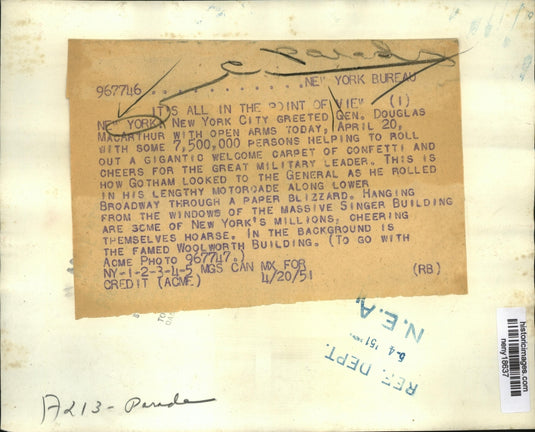 Parade
967746 . . . . . . . . . . . . . NEW YORK BUREAU
IT'S ALL IN THE POINT OF VIEW (1)
NEW YORK, NEW YORK CITY GREETED GEN. DOUGLAS
MACARTHUR WITH OPEN ARMS TODAY, APRIL 20,
WITH SOME 7,500,000 PERSONS HELPING TO ROLL
OUT A GIGANTIC WELCOME CARPET OF CONFETTI AND
CHEERS FOR THE GREAT MILITARY LEADER. THIS IS
HOW GOTHAM LOOKED TO THE GENERAL AS HE ROLLED
IN HIS LENGTHY MOTORCADE ALONG LOWER
BROADWAY THROUGH A PAPER BLIZZARD. HANGING
FROM THE WINDOWS OF THE MASSIVE SINGER BUILDING
ARE SOME OF NEW YORK'S MILLIONS, CHEERING
THEMSELVES HOARSE. IN THE BACKGROUND IS
THE FAMED WOOLWORTH BUILDING. (TO GO WITH
ACME PHOTO 967747.)
NY-1-2-3-4-5 MGS CAN MX FOR (RB)
CREDIT (ACME) 4/20/51
REF. DEPT.
N.E.A.
A213 - Parade
historicimages.com
neny18637